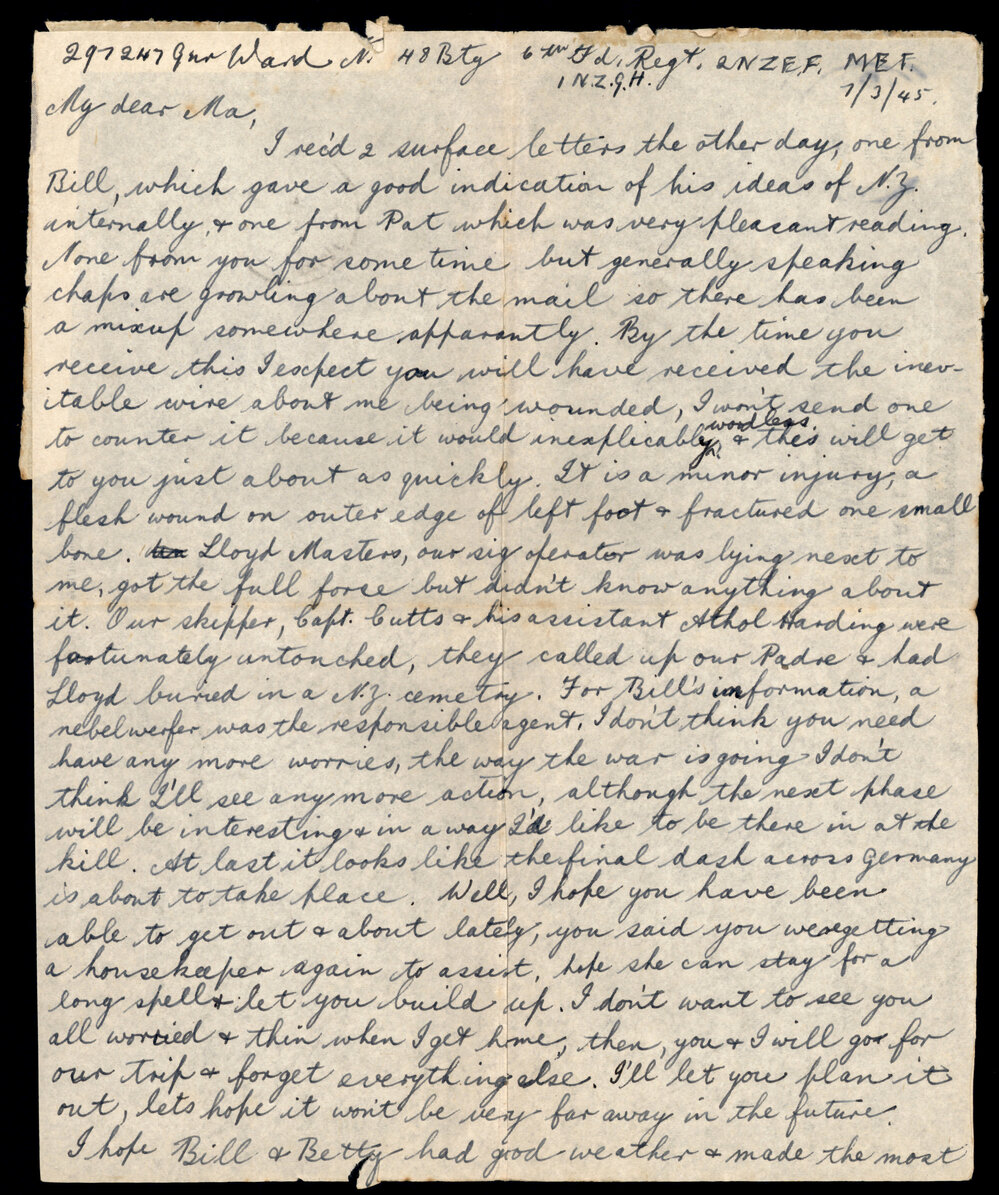 297247 Gnr Ward N. 48 Bty 6th Fd. Regt. 2NZEF. MEF.
1 N.Z.G.H.
7/3/45.
My dear Ma,
I rec'd 2 surface letters the other day, one from
Bill, which gave a good indication of his ideas of N.Z.
internally, & one from Pat which was very pleasant reading.
None from you for some time but generally speaking
chaps are growling about the mail so there has been
a mixup somewhere apparantly. By the time you
receive this I expect you will have received the inev-
itable wire about me being wounded, I won't send one
wordless
to counter it because it would inexplicably, & this will get
to you just about as quickly. It is a minor injury, a
flesh wound on outer edge of left foot & fractured one small
bone. Lloyd Masters, our sig operator was lying next to
me, got the full force but didn't know anything about
it. Our skipper, Capt. Cutts & his assistant Athol Harding were
fortunately untouched, they called up our Padre & had
Lloyd buried in a N.Z. cemetry. For Bill's information, a
nebelwerfer was the responsible agent. I don't think you need
have any more worries, the way the war is going I don't
think I'll see any more action, although the next phase
will be interesting & in a way I'd like to be there in at the
kill. At last it looks like the final dash across Germany
is about to take place. Well, I hope you have been
able to get out & about lately, you said you were getting
a housekeeper again to assist, hope she can stay for a
long spell & let you build up. I don't want to see you
all worried & thin when I get home, then, you & I will go for
our trip & forget everything else. I'll let you plan it
out, lets hope it won't be very far away in the future.
I hope Bill & Betty had good weather & made the most